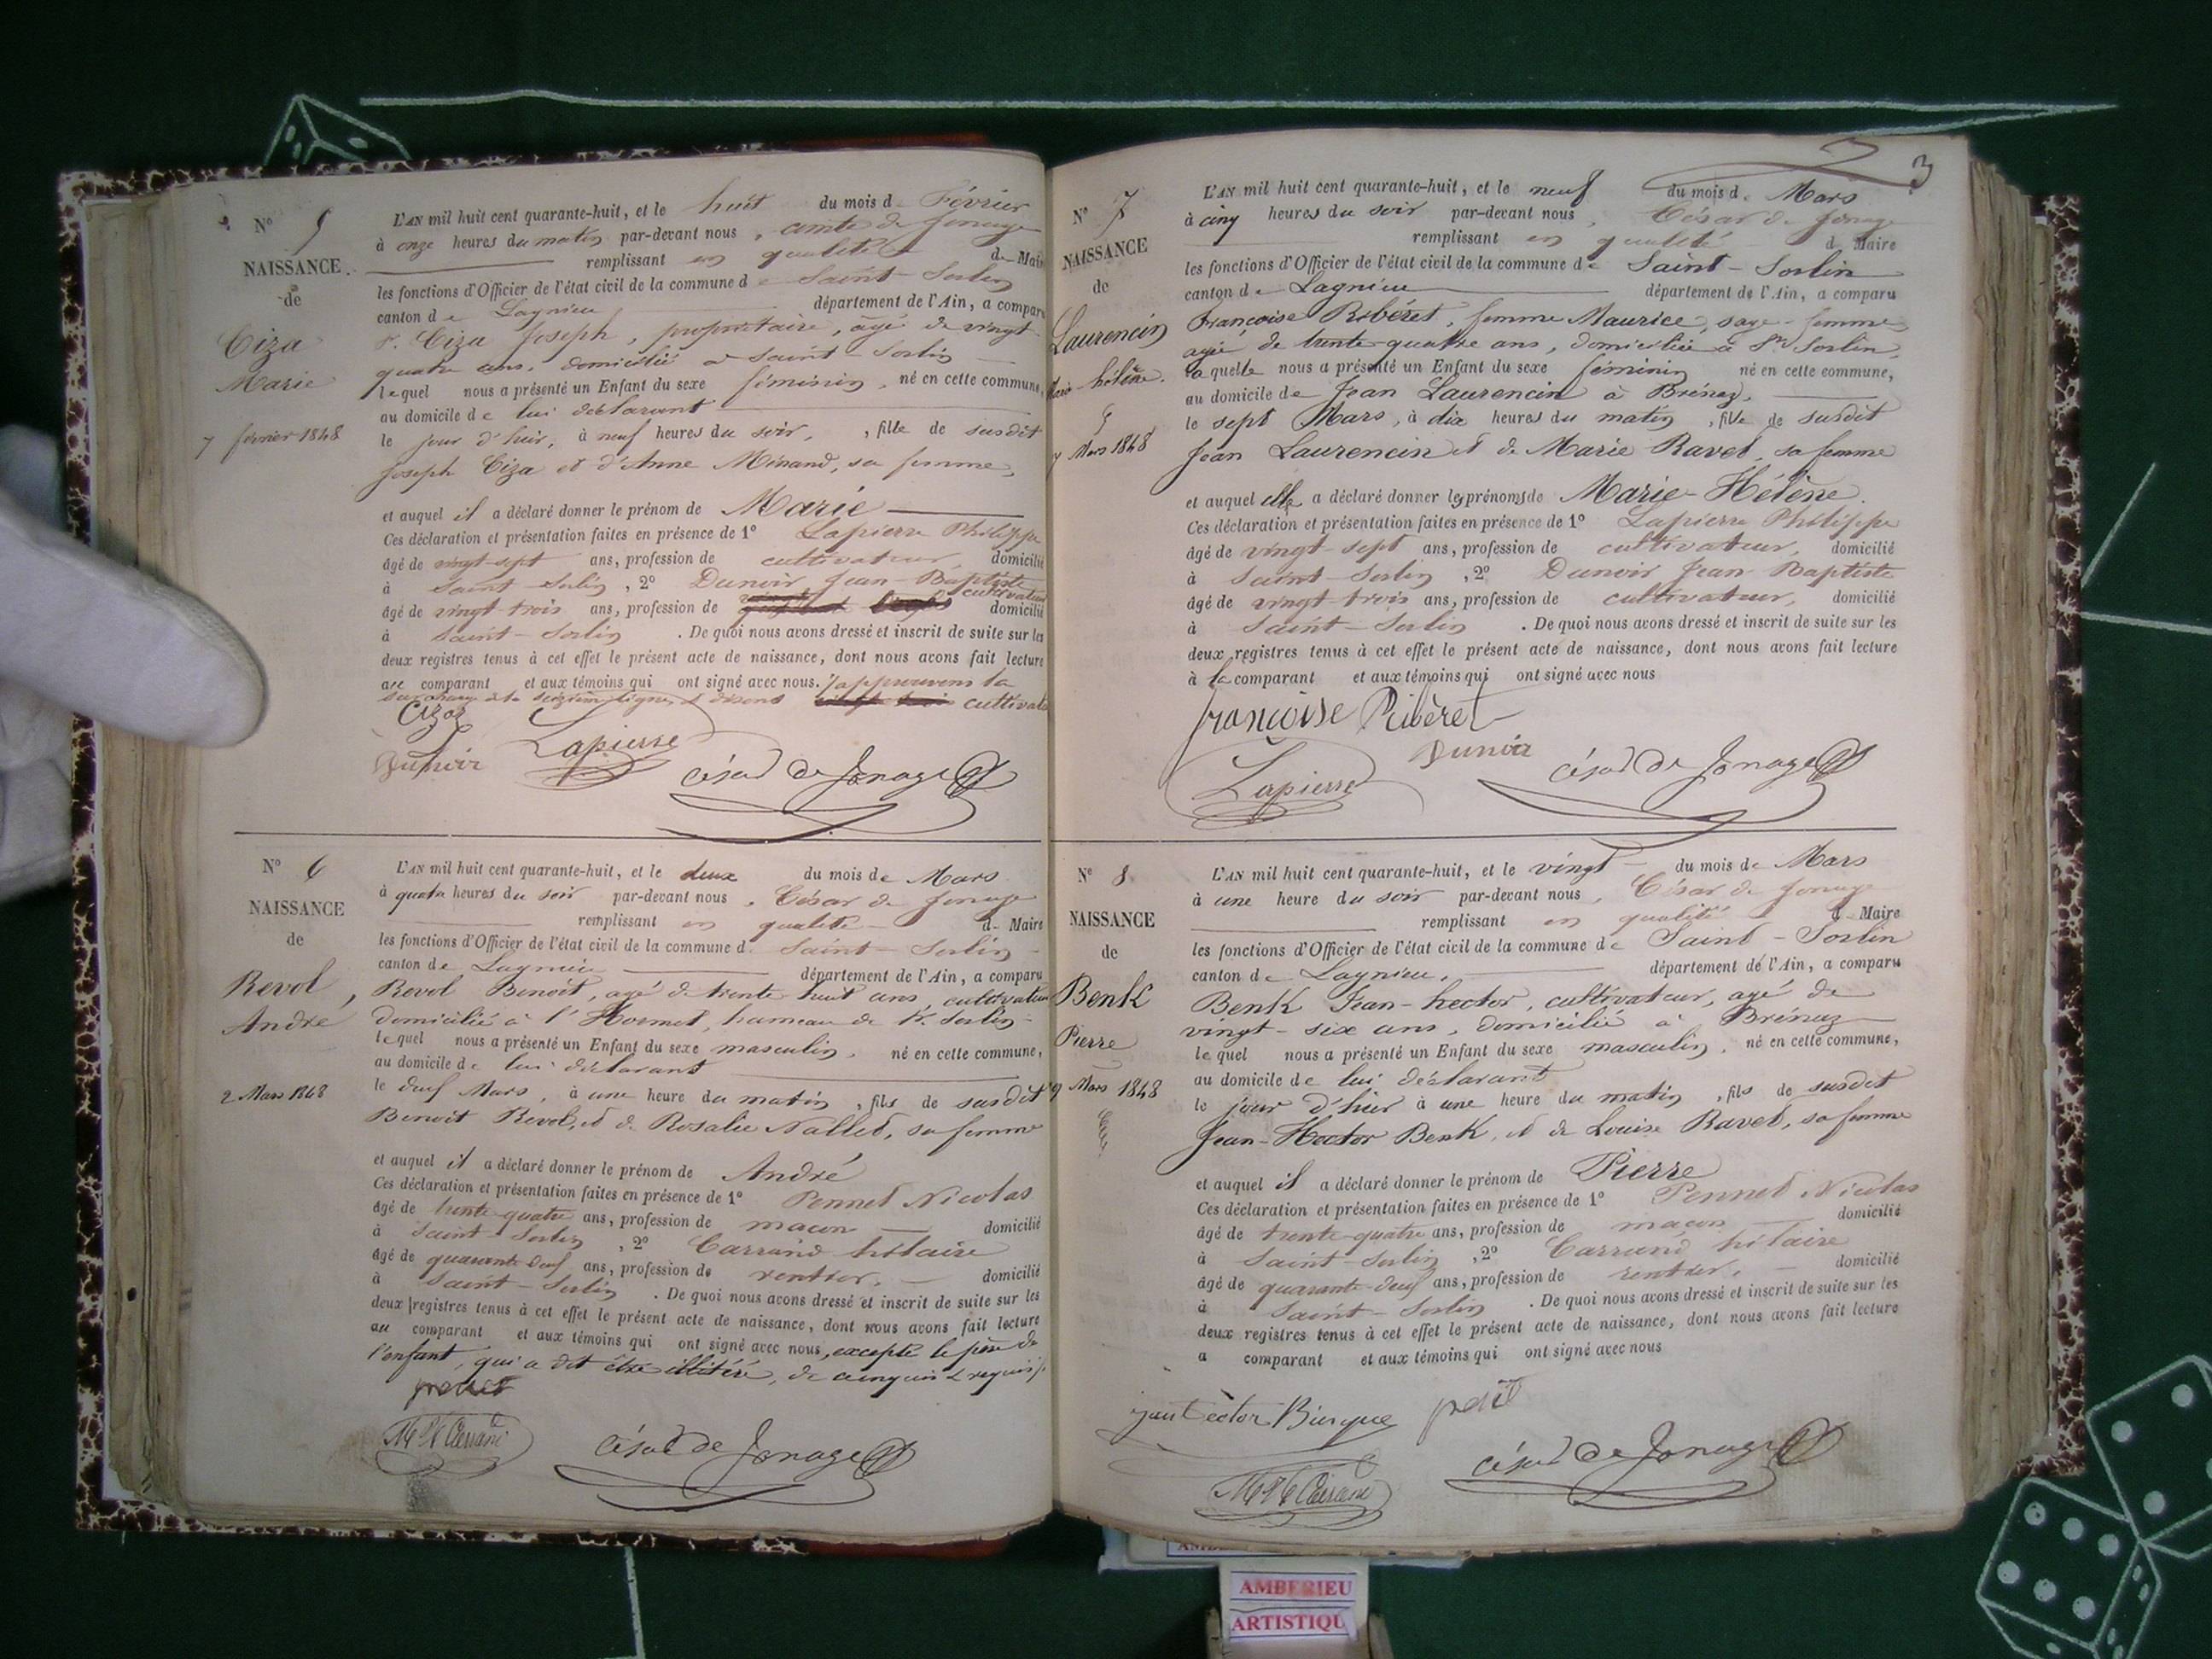 N° 5
NAISSANCE
de
Ciza
Marie
7 février 1848
L'AN mil huit cent quarante-huit, et le huit du mois d Février
à onze heures du matin par-devant nous, comte de Jonage
remplissant en qualité de Maire
les fonctions d'Officier de l'état civil de la commune de Saint-Sorlin
canton de Lagnieu département de l'Ain, a comparu
Sr. Ciza Joseph, propriétaire, âgé de vingt
quatre ans, domicilié à Saint-Sorlin
lequel nous a présenté un Enfant du sexe féminin, né en cette commune,
au domicile de lui déclarant
le jour d'hier, à neuf heures du soir, , fille de susdit
Joseph Ciza et d'Anne Minand, sa femme,
et auquel il a déclaré donner le prénom de Marie
Ces déclaration et présentation faites en présence de 1° Lapierre Philippe
âgé de vingt-sept ans, profession de cultivateur, domicilié
à Saint-Sorlin, 2° Dunoir Jean-Baptiste
âgé de vingt-trois ans, profession de cultivateur domicilié
à Saint-Sorlin. De quoi nous avons dressé et inscrit de suite sur les
deux registres tenus à cet effet le présent acte de naissance, dont nous avons fait lecture
au comparant et aux témoins qui ont signé avec nous. J'approuvons la
surcharge à la seizième ligne, et disons cultivateur
Cizaz
Dunoir Lapierre César de Jonage
N° 6
NAISSANCE
de
Revol,
André
2 Mars 1848
L'AN mil huit cent quarante-huit, et le deux du mois de Mars
à quatre heures du soir par-devant nous, César de Jonage
remplissant en qualité d Maire
les fonctions d'Officier de l'état civil de la commune d Saint-Sorlin
canton de Lagnieu département de l'Ain, a comparu
Revol Benoît, agé de trente huit ans, cultivateur
domicilié à l'Hormet, hameau de St. Sorlin
lequel nous a présenté un Enfant du sexe masculin, né en cette commune,
au domicile de lui déclarant
le deux Mars, à une heure du matin, fils de susdit
Benoît Revol, et de Rosalie Nallet, sa femme
et auquel il a déclaré donner le prénom de André
Ces déclaration et présentation faites en présence de 1° Pennet Nicolas
âgé de trente-quatre ans, profession de maçon domicilié
à Saint-Sorlin, 2° Carrand hilaire
âgé de quarante-deux ans, profession de rentier, domicilié
à Saint-Sorlin. De quoi nous avons dressé et inscrit de suite sur les
deux registres tenus à cet effet le présent acte de naissance, dont nous avons fait lecture
au comparant et aux témoins qui ont signé avec nous, excepté le père de
l'enfant, qui a dit être illitéré, de ce enquis & requis
César de Jonage
3
N° 7
NAISSANCE
de
Laurencin
Marie-hélène.
7 Mars 1848
L'AN mil huit cent quarante-huit, et le neuf du mois d. Mars
à cinq heures du soir par-devant nous, César de Jonage
remplissant en qualité d Maire
les fonctions d'Officier de l'état civil de la commune de Saint-Sorlin
canton de Lagnieu département de l'Ain, a comparu
Françoise Ribéret, femme Maurice, sage-femme,
agée de trente quatre ans, domiciliée à St Sorlin,
laquelle nous a présenté un Enfant du sexe féminin né en cette commune,
au domicile de Jean Laurencin à Brénaz,
le sept Mars, à dix heures du matin, fille de susdit
Jean Laurencin et de Marie Ravet, sa femme
et auquel elle a déclaré donner les prénoms de Marie-Hélène.
Ces déclaration et présentation faites en présence de 1° Lapierre Philippe
âgé de vingt-sept ans, profession de cultivateur, domicilié
à Saint-Sorlin, 2° Dunoir Jean-Baptiste
âgé de vingt-trois ans, profession de cultivateur, domicilié
à Saint-Sorlin. De quoi nous avons dressé et inscrit de suite sur les
deux registres tenus à cet effet le présent acte de naissance, dont nous avons fait lecture
à la comparant et aux témoins qui ont signé avec nous
françoise Ribèret
Lapierre Dunoir César de Jonage
N° 8
NAISSANCE
de
Benk
Pierre
Mars 1848
L'AN mil huit cent quarante-huit, et le vingt du mois de Mars
à une heure du soir par-devant nous, César de Jonage
remplissant en qualité d Maire
les fonctions d'Officier de l'état civil de la commune de Saint-Sorlin
canton de Lagnieu, département de l'Ain, a comparu
Benk Jean-hector, cultivateur, agé de
vingt-six ans, domicilié à Brénaz
lequel nous a présenté un Enfant du sexe masculin, né en cette commune,
au domicile de lui déclarant
le jour d'hier à une heure du matin, fils de susdit
Jean-Hector Benk, et de Louise Ravet, sa femme
et auquel il a déclaré donner le prénom de Pierre
Ces déclaration et présentation faites en présence de 1° Pennet Nicolas
âgé de trente-quatre ans, profession de maçon domicilié
à Saint-Sorlin, 2° Carrand hilaire
âgé de quarante-deux ans, profession de rentier, domicilié
à Saint-Sorlin. De quoi nous avons dressé et inscrit de suite sur les
deux registres tenus à cet effet le présent acte de naissance, dont nous avons fait lecture
a comparant et aux témoins qui ont signé avec nous
César de Jonage
AMBERIEU
ARTISTIQU